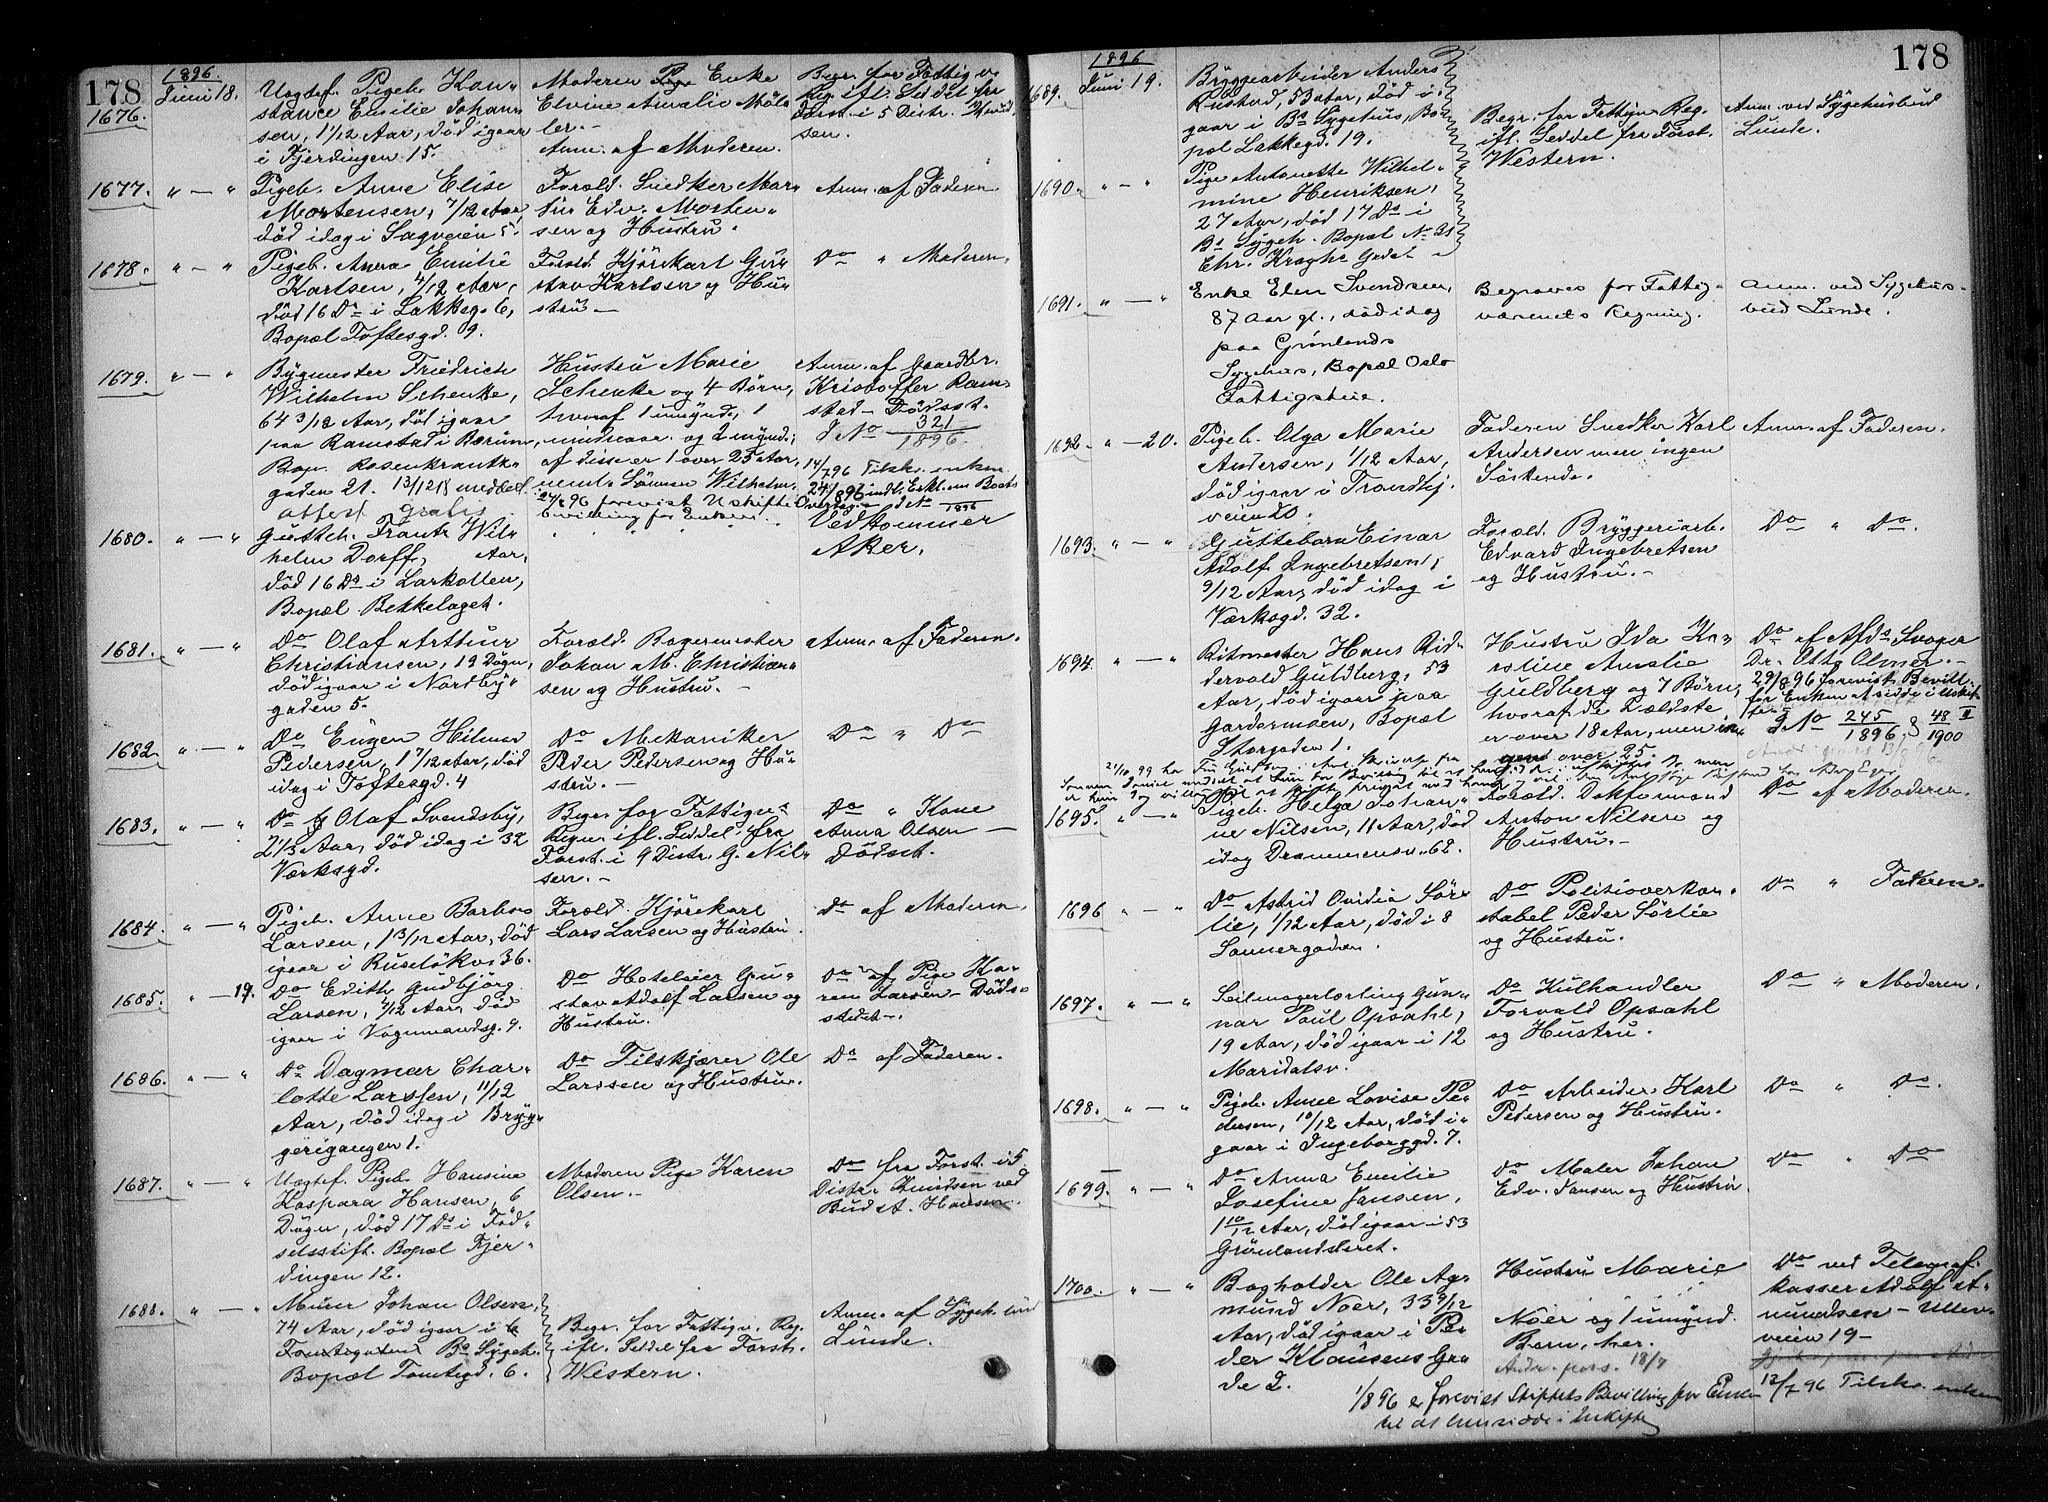 178
1896.
Juni 18.
1676.
Uegtef. Pigeb. Kon-
stance Emilie Johan-
sen, 1 1/12 Aar, död igaar
i Fjerdingen 15.
Moderen Enke
Elvine Amalie Möl-
ler.-
Anm. af Moderen.
Begr. for Fattigv.
Reg. ifl. Seddel fra
Forst. i 5 Distr.
sen.
1677. " — "
Pigeb. Anne Elise
Mortensen, 7/12 Aar,
död idag i Sagveien 5.
Foræld. Snedker Mar-
tin Edv. Morten-
sen og Hustru.
Anm. af Faderen.
1678. " — "
Pigeb. Anna Emilie
Karlsen, 4/12 Aar,
död 16 Ds i Lakkeg. 6,
Bopæl Toftesgd. 9.
Foræld. Kjörekarl Gu-
stav Karlsen og Hu-
stru.—
Do " Moderen.
1679. " — "
Bygmester Friedrich
Wilhelm Schenke,
64 3/12 Aar, död igaar
paa Ramstad i Bærum,
Bop. Rosenkrantz-
gaden 21. 13/12 18 meddelt
attest gratis
Hustru Marie
Schenke og 4 Börn,
hvoraf 1 umynd., 1
mindreaar. og 2 mynd.;
af disse er 1 over 25 Aar,
neml. Sönnen Wilhelm.
96 forevist Uskifte
Bevilling for Enken.
Anm. af Gaardbr.
Kristoffer Ram-
stad — Dödsst.
J No 321/1896.
14/7 96 Tilskr. enken
24/8 96 indl. Erkl. om Boets
Overtag. J No 1896
1680. " — "
Gutteb. Frantz Wil-
helm Dorff, Aar,
död 16 Ds i Larkollen,
Bopæl Bekkelaget.
Ved Stommer
Aker.
1681. " — "
Do Olaf Arthur
Christiansen, 19 Dögn,
död igaar i Nordby-
gaden 5.
Foræld. Bagermester
Johan M. Christian-
sen og Hustru.—
Anm. af Faderen.
1682. " — "
Do Eugen Hilmar
Pedersen, 1 7/12 Aar, död
idag i Toftesgd. 4
Do Mekaniker
Peder Pedersen og Hu-
stru.—
Do " Do
1683. " — "
Do Olaf Svendsby,
2 1/3 Aar, död idag i 32
Værksgd.
Begr. for Fattigv.
Regn. ifl. Seddel fra
Forst. i 9 Distr. G. Nil-
sen.—
Do " Kone
Anna Olsen —
Dödsst.
1684. " — "
Pigeb. Anne Barbra
Larsen, 1 3/12 Aar, död
igaar i Ruselökv. 36.
Foræld. Kjörekarl
Lars Larsen og Hustru.
Do af Moderen.
1685. " — 19.
Do Edith Gudbjörg
Larsen, 4/12 Aar, död
igaar i Vognmandsg. 9.
Do Hotelleier Gu-
stav Adolf Larsen og
Hustru.
Do af Pige Ka-
ren Larsen — Döds-
stedet.
1686. " — "
Do Dagmar Char-
lotte Larssen, 11/12
Aar, död idag i Bryg-
gerigangen 1.
Do Tilskjærer Ole
Larssen og Hustru.
Do af Faderen.
1687. " — "
Uegtef. Pigeb. Hansine
Kaspara Hansen, 6
Dögn, död 17 Ds i Föd-
selsstift. Bopæl Fjer-
dingen 12.
Moderen Pige Karen
Olsen.
Do fra Forst. i 5
Distr. Knudsen ved
Budst. Hansen.
1688. " — "
Murer Johan Olsen,
74 Aar, död igaar i
Bs Sygeh.
Bopæl Tomtegd. 6.
Begr. for Fattigv. Reg.
ifl. Seddel fra Forst.
Western.
Anm. af Sygeh. bud
Lunde.
178
1896
1689. Juni 19.
Bryggearbeider Anders
Rustad, 53 Aar, död i-
gaar i Bs Sygehus, Bo-
pæl Lakkegd. 19.
Begr. for Fattigv. Reg.
ifl. Seddel fra Forst.
Western.
Anm. ved Sygehusbud
Lunde.
1690. " — "
Pige Antonette Wilhel-
mine Henriksen,
27 Aar, död 17 Ds i
Bs Sygeh. Bopæl No 31
Chr. Kroghs Gade
1691. " — "
Enke Elen Svendsen,
87 Aar gl., död idag
paa Grønlands
Sygehus, Bopæl Oslo
Fattighuse.
Begraves for Fattig-
væsenets Regning.
Anm. ved Sygehus-
bud Lunde.
1692. " — 20.
Pigeb. Olga Marie
Andersen, 1/12 Aar,
död igaar i Trondhj.
veien 20.
Faderen Snedker Karl
Andersen men ingen
Söskende.
Anm. af Faderen.
1693. " — "
Guttebarn Einar
Adolf Ingebretsen,
9/12 Aar, död idag i
Værksgd. 32.
Foræld. Bryggeriarb.
Edvard Ingebretsen
og Hustru.—
Do " Do.
1694. " — "
Ritmester Hans Rid-
dervold Guldberg, 53
Aar, död igaar paa
Gardermoen, Bopæl
Storgaden 1.
Hustru Ida Ka-
roline Amalie
Guldberg og 7 Börn,
hvoraf de 2 ældste
er over 18 Aar, men in-
gen over 25.
Do af Afds Svoger
Dr. Otto Olmer.—
29/8 96 forevist Bevill.
for Enken at sidde i Uskif-
te.
J No 245/1896, 48/1900
1695. " — "
Pigeb. Helga Johan-
ne Nilsen, 11 Aar, död
idag Drammensv. 62.
Foræld. Dokformand
Anton Nilsen og
Hustru.—
Do af Moderen.
1696 " — "
Do Astrid Ovidia Sör-
lie, 1/12 Aar, död i 8
Sannergaden.
Do Politioverkon-
stabel Peder Sörlie
og Hustru.
Do " Faderen.
1697. " — "
Seilmagerlærling Gun-
nar Paul Opsahl,
19 Aar, död igaar i 12
Maridalsv.
Do Kulhandler
Torvald Opsahl
og Hustru.
Do " Moderen.
1698. " — "
Pigeb. Anne Lovise Pe-
dersen, 10/12 Aar, död i-
gaar i Ingeborggd. 7.
Do Arbeider Karl
Pedersen og Hustru.
Do " Do.
1699. " — "
Do Anna Emilie
Josefine Jansen,
1 10/12 Aar, död igaar i 53
Grönlandsleret.
Do Maler Johan
Edv. Jansen og Hustru.
Do " Do
1700. " — "
Bogholder Ole Ag-
mund Noer, 33 9/12
Aar, död igaar i Pe-
der Klausens Ga-
de 2.
Hustru Marie
Noer og 1 umynd.
Barn, her.
18/7
1/8 96 er forevist Stiftets Bevilling for Enken
til at hensidde i Uskifte
Do ved Telegraf-
kasser Adolf A-
mundsen — Ullev.
veien 19 —
13/7 96 Tilskr. enken